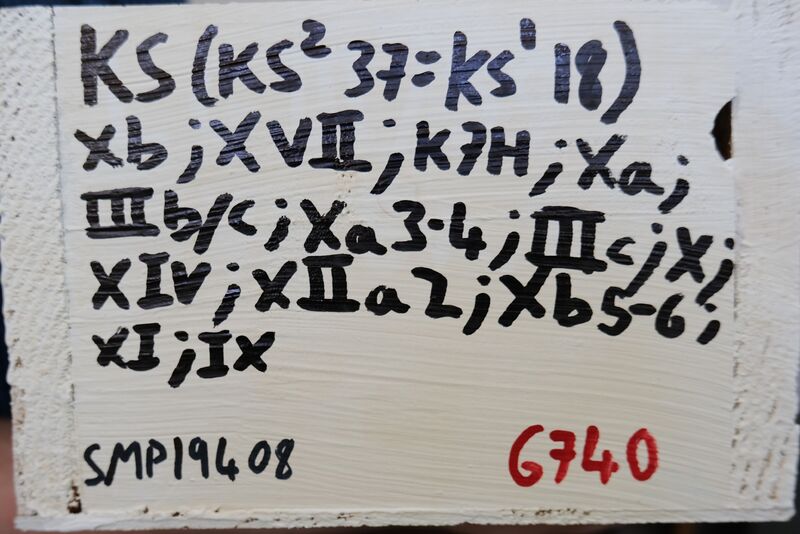 KS (KS² 37=KS¹ 18)
Xb; XVII; K7H; Xa;
IIIb/c; Xa3-4; IIIc; X;
XIV; XIIa2; Xb5-6;
XI; IX
SMP19408 6740